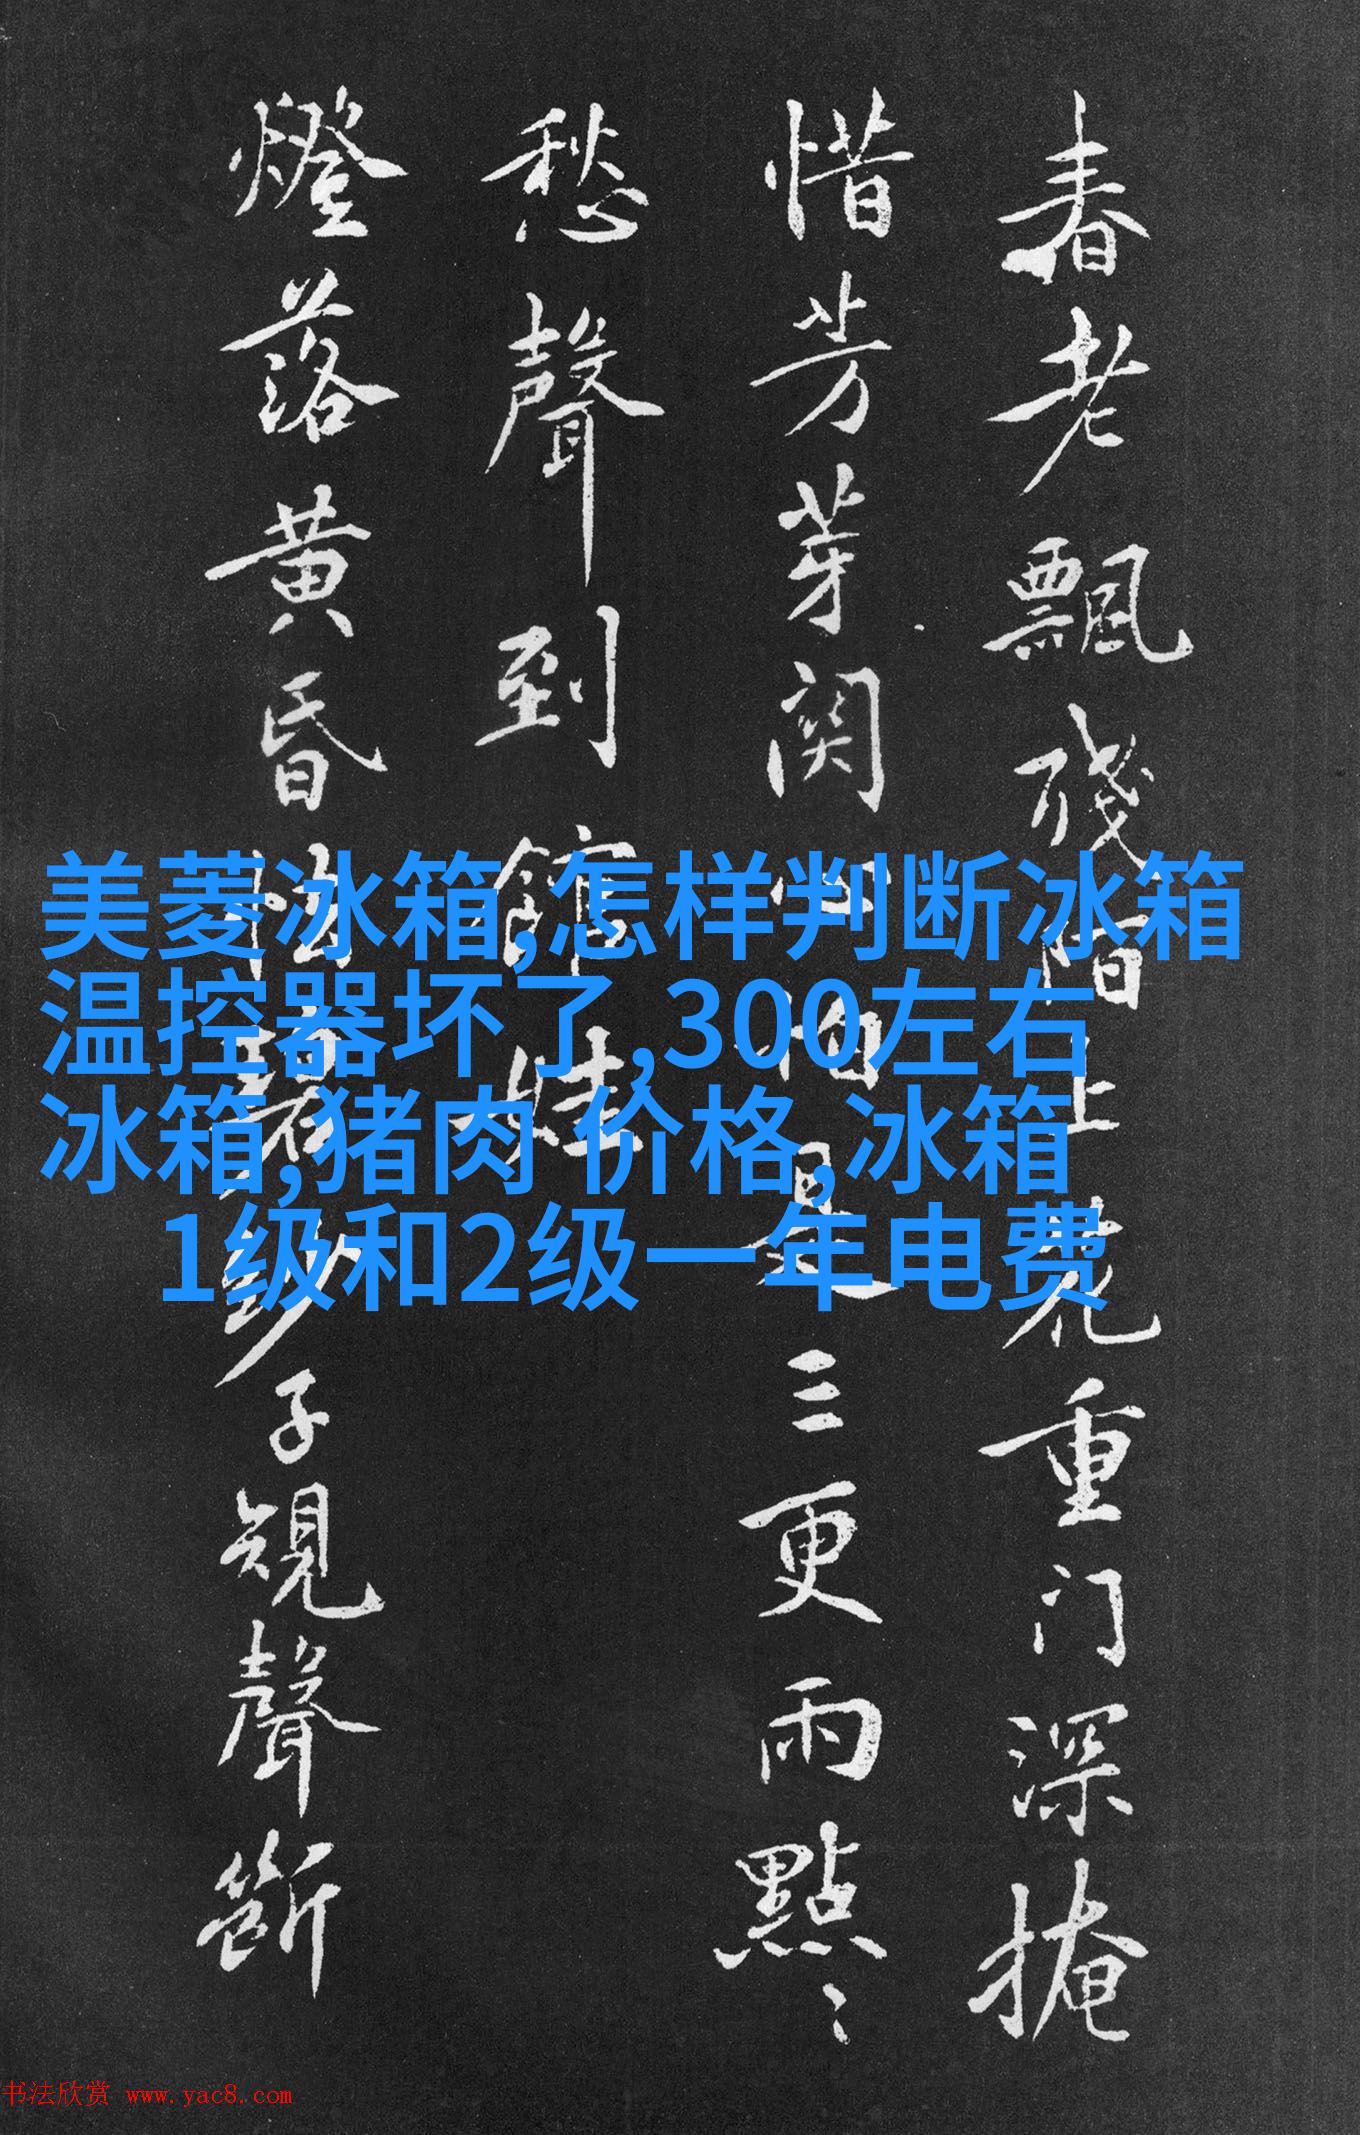 春老飄殘階上花重门深掩
惜芳芽関心怕是三更雨點〻
愁聲到館娃
燈落黄昏 子規聲斷
美菱冰箱,怎样判断冰箱
温控器坏了,300左右
冰箱,猪肉 价格,冰箱
1级和2级一年电费
书法欣赏 www.yac8.com